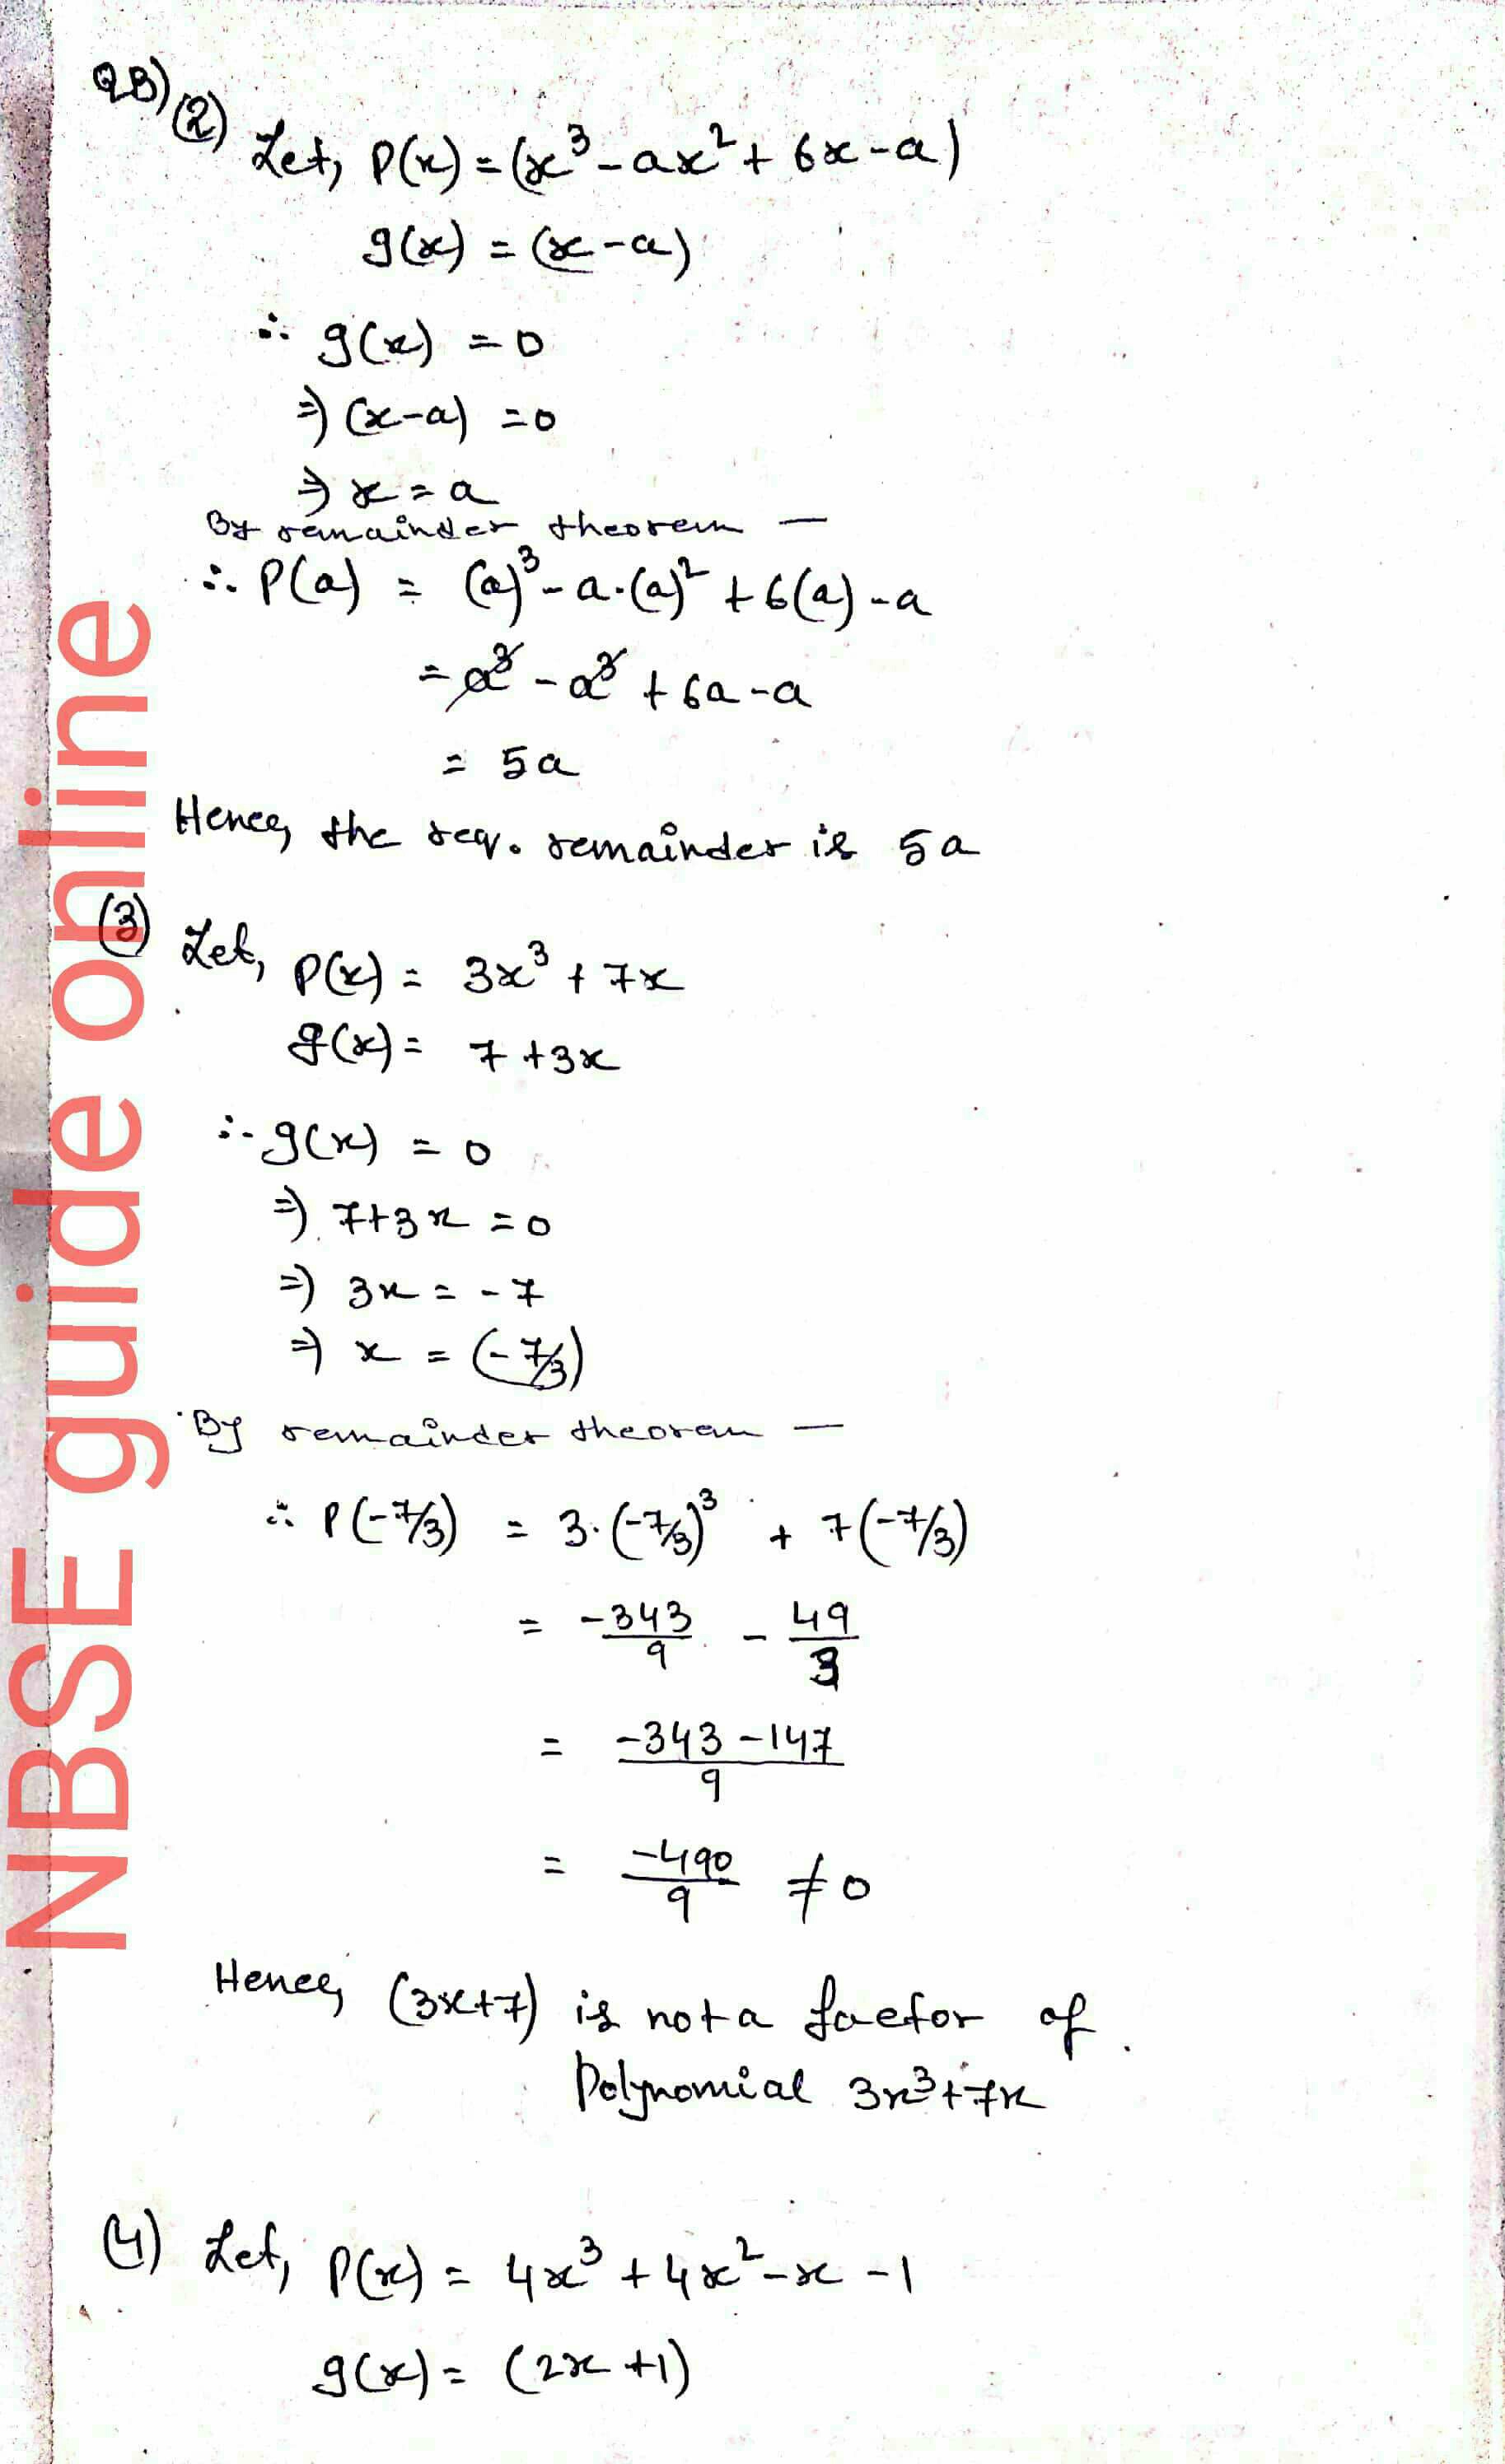 2B) (2)
Let, P(x) = (x³ - ax² + 6x - a)
g(x) = (x - a)
∴ g(x) = 0
⇒ (x-a) = 0
⇒ x = a
By remainder theorem —
∴ P(a) = (a)³ - a·(a)² + 6(a) - a
= a³ - a³ + 6a - a
= 5a
Hence, the req. remainder is 5a
(3) Let, P(x) = 3x³ + 7x
g(x) = 7 + 3x
∴ g(x) = 0
⇒ 7+3x = 0
⇒ 3x = -7
⇒ x = (-7/3)
By remainder theoram —
∴ P(-7/3) = 3·(-7/3)³ + 7(-7/3)
= -343/9 - 49/3
= -343-147/9
= -490/9 ≠ 0
Hence, (3x+7) is not a factor of
Polynomial 3x³+7x
(4) Let, P(x) = 4x³ + 4x² - x - 1
g(x) = (2x +1)
NBSE guide online